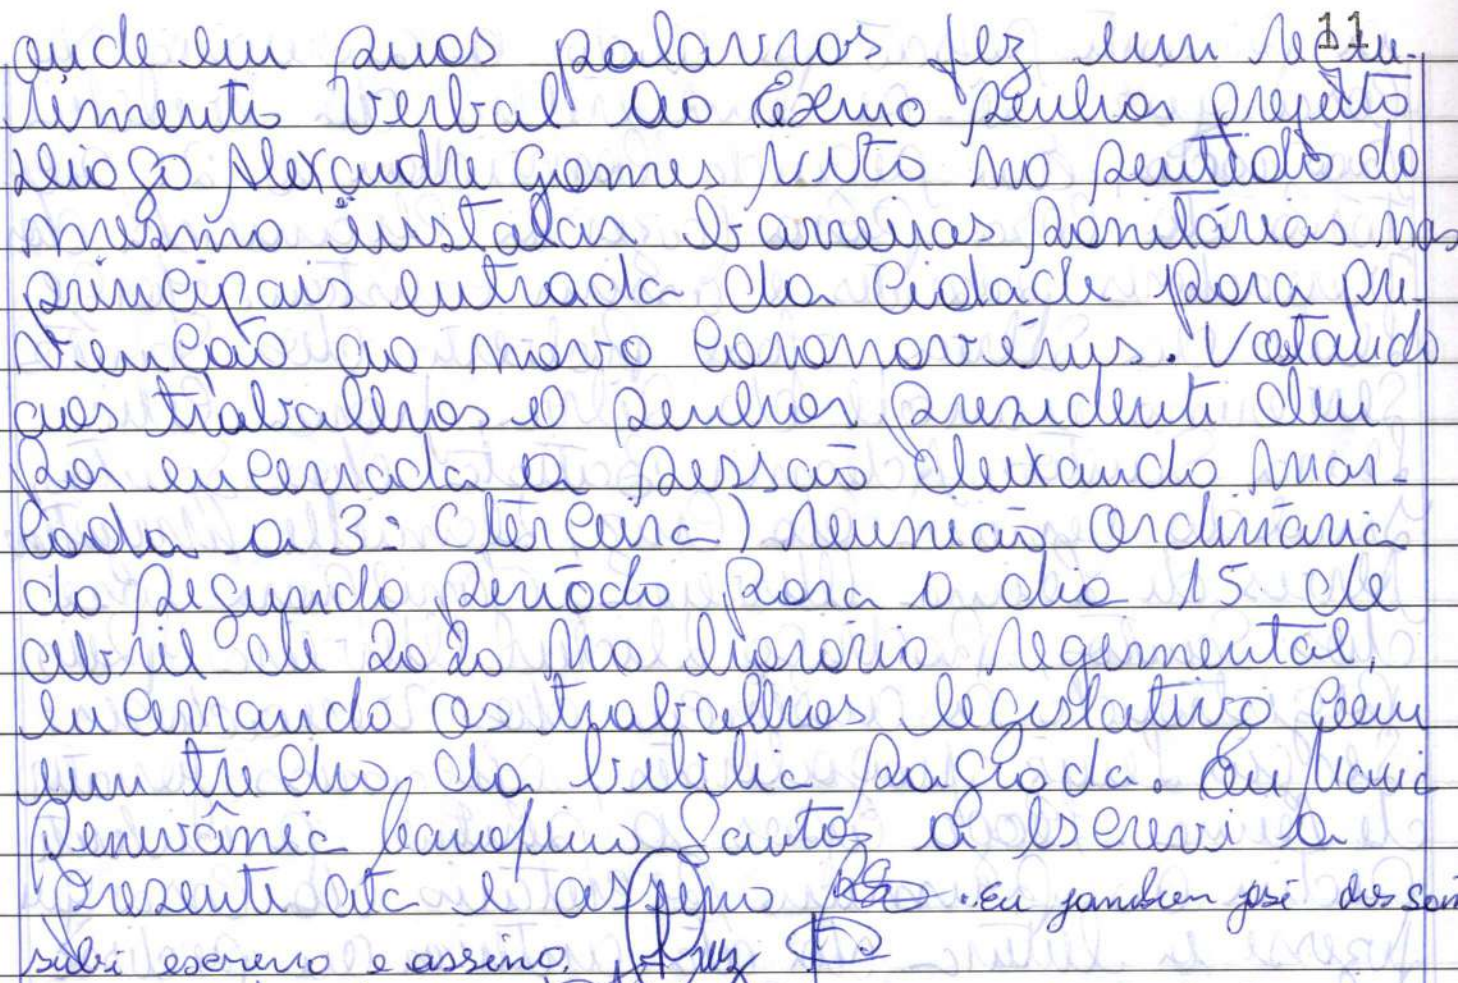 11
onde em suas palavras fez um reque-
rimento Verbal ao Exmo Senhor prefeito
Diogo Alexandre Gomes Neto no sentido do
mesmo instalar barreiras sanitárias nas
principais entrada da Cidade para pre-
venção ao novo Coronavírus. Voltando
aos trabalhos o Senhor presidente deu
por encerrada a sessão deixando mar-
cada a 3ª (terceira) reunião Ordinária
do segundo período para o dia 15 de
abril de 2020 no horário regimental,
encerrando os trabalhos legislativo com
um trecho da bíblia sagrada. Eu Maria
Santos a escrevi a
presente ata e assino . Eu josé dos San
subi escrevo e assino.